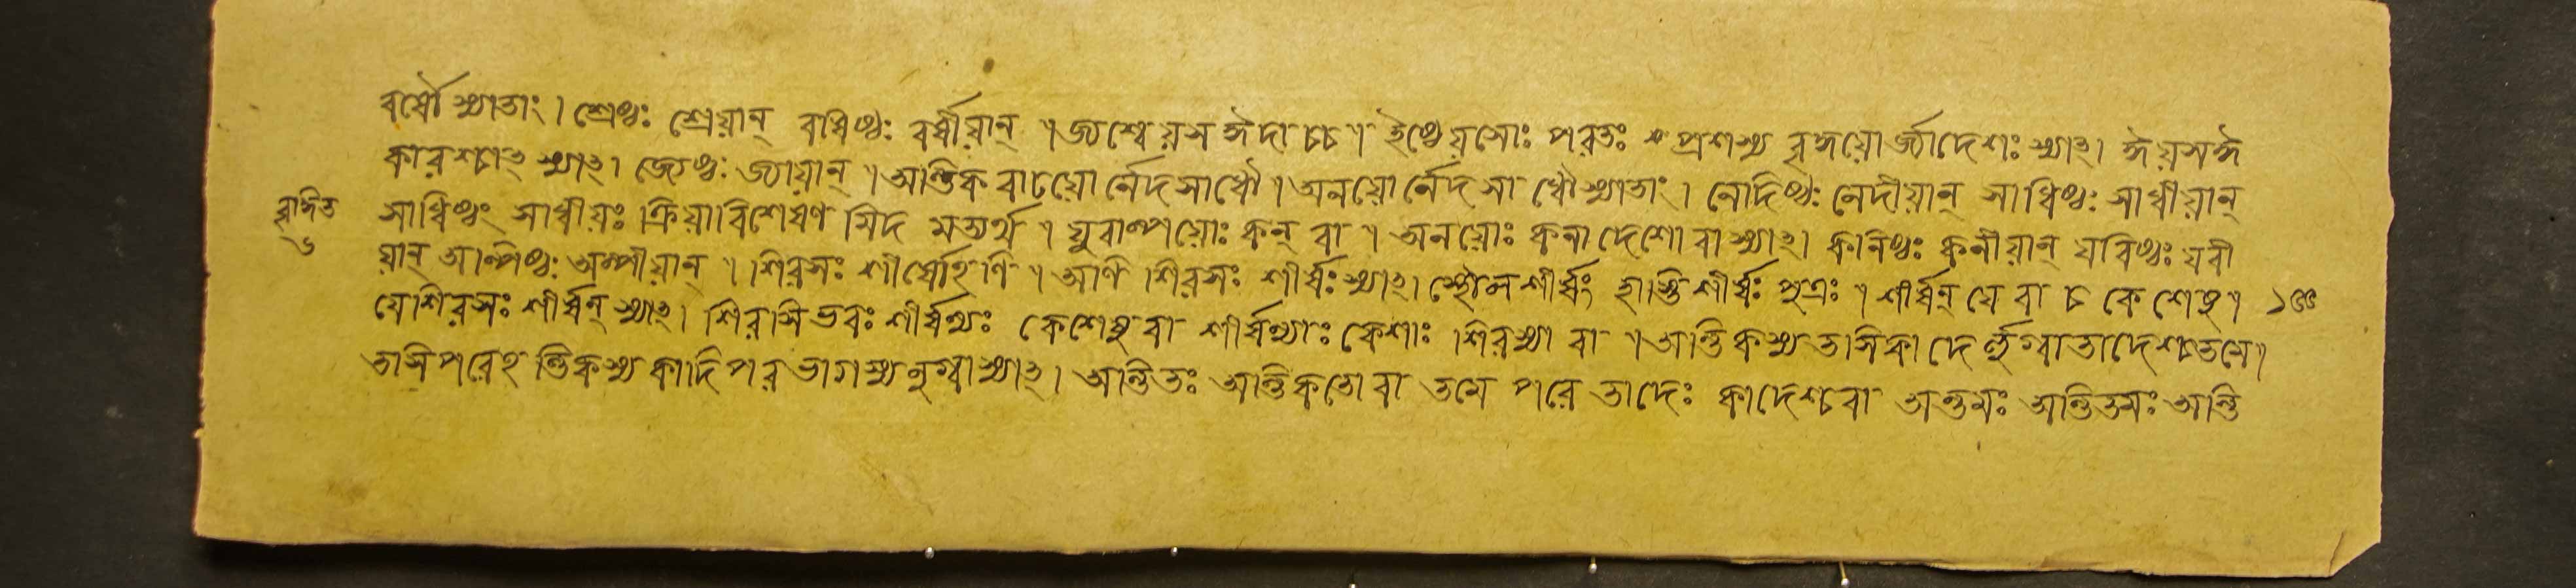 বর্ষৌ স্যাতাং। শ্রেষ্ঠঃ শ্রেয়ান্ বর্ষিষ্ঠঃ বর্ষীয়ান্ । জ্যশ্চেয়স ঈদাচ্চ । ইষ্ঠেয়সোঃ পরতঃ প্রশস্য বৃদ্ধয়োর্জ্যাদেশঃ স্যাৎ। ঈয়স ঈ
কারশ্চাৎ স্যাৎ। জ্যেষ্ঠঃ জ্যায়ান্ । অন্তিক বাঢয়োর্নেদসাধৌ । অনয়োর্নেদ সাধৌ স্যাতাং। নেদিষ্ঠঃ নেদীয়ান্ সাধিষ্ঠঃ সাধীয়ান্
সাধিষ্ঠং সাধীয়ঃ ক্রিয়াবিশেষণ মিদ মত্যর্থে । যুবাল্পয়োঃ কন্ বা । অনয়োঃ কনাদেশো বা স্যাৎ। কনিষ্ঠঃ কনীয়ান্ যবিষ্ঠঃ যবী
য়ান্ অল্পিষ্ঠঃ অল্পীয়ান্ । শিরসঃ শীর্ষোঽণি । অণি শিরসঃ শীর্ষঃ স্যাৎ। স্থৌলশীর্ষং হাস্তিশীর্ষঃ পুত্রঃ । শীর্ষন্ যে বা চ কেশেষু । ১৫৫
যে শিরসঃ শীর্ষন্ স্যাৎ। শিরসি ভবঃ শীর্ষণ্যঃ কেশেষু বা শীর্ষণ্যাঃ কেশাঃ শিরস্যা বা । অন্তিকস্য তসি কাদের্লুগ্বা তাদেশ্চ তমে।
তসি পরেঽন্তিকস্য কাদি পর ভাগস্য লুগ্বা স্যাৎ। অন্তিতঃ অন্তিকতো বা তমে পরে তাদেঃ কাদেশ্চ বা অন্তমঃ অন্তিতমঃ অন্তি